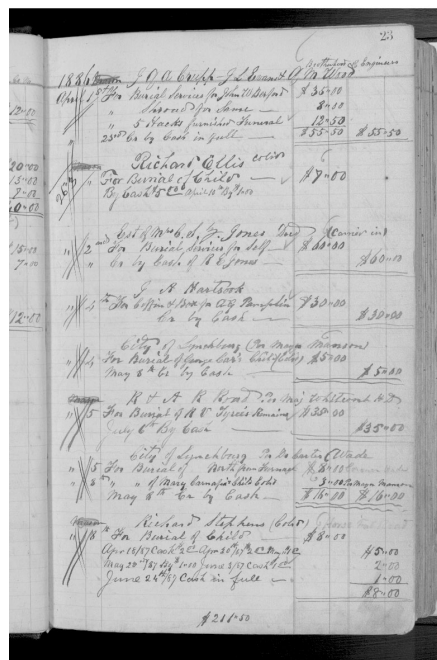 23
Brotherhood of Engineers
1886 J. O. A. Crupp J. L. Evans & A. M. Wood
April 1st For Burial Services for John W $35"00
" Shroud for Same 8"00
" 5 Hacks furnished Funeral 12"50
23rd Cr by Cash in full $55"50 $55"50
Richard Ellis cold
" For Burial of Child $7"00
By Cash $5 April 10th
Est of Mrs C. A. Y. Jones Decd (Carrier in)
" 2nd For Burial Services for Self $60"00
" Cr by Cash of R E Jones $60"00
J A Hartsook
" 4th For Coffin & Box for A. G. Pamplin $30"00
Cr by Cash $30"00
City of Lynchburg (Per Mayor Manson)
" 4 For Burial of George Carr's Child (Cold) $5"00
May 8th Cr by Cash $5"00
R & A R Road Per Maj Whitworth
" 5 For Burial of R V Tyree's Remains $35"00
July 6th By Cash $35"00
City of Lynchburg Per Carter Wade
" 5 For Burial of North from Furnace $8"00
" 8th " " of Mary Child Cold 3"00 Per Mayor Manson
May 8th Cr by Cash $16"00 $16"00
Richard Stephens (Cold)
" 18th For Burial of Child $8"00
Apr 12/87 Cash 2 Apr 30th/87 2 45"00
May 28th/87 1"00 June 3/87 Cash 2"00
June 24th/87 Cash in full 1"00
$8"00
$211"50
12"00
20"00
15"00
7"00
15"00
7"00
12"00